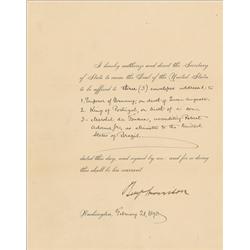 I hereby authorize and direct the Secretary
of State to cause the Seal of the United States
to be affixed to three (3) envelopes addressed to
1. Emperor of Germany, on death of Queen Augusta.
2. King of Portugal, on birth of a son
3. Marshal da Fonseca, accrediting Robert
Adams, Jr., as Minister to the United
States of Brazil.
dated this day, and signed by me: and for so doing
this shall be his warrant.
Benj Harrison
Washington, February 28, 1890.